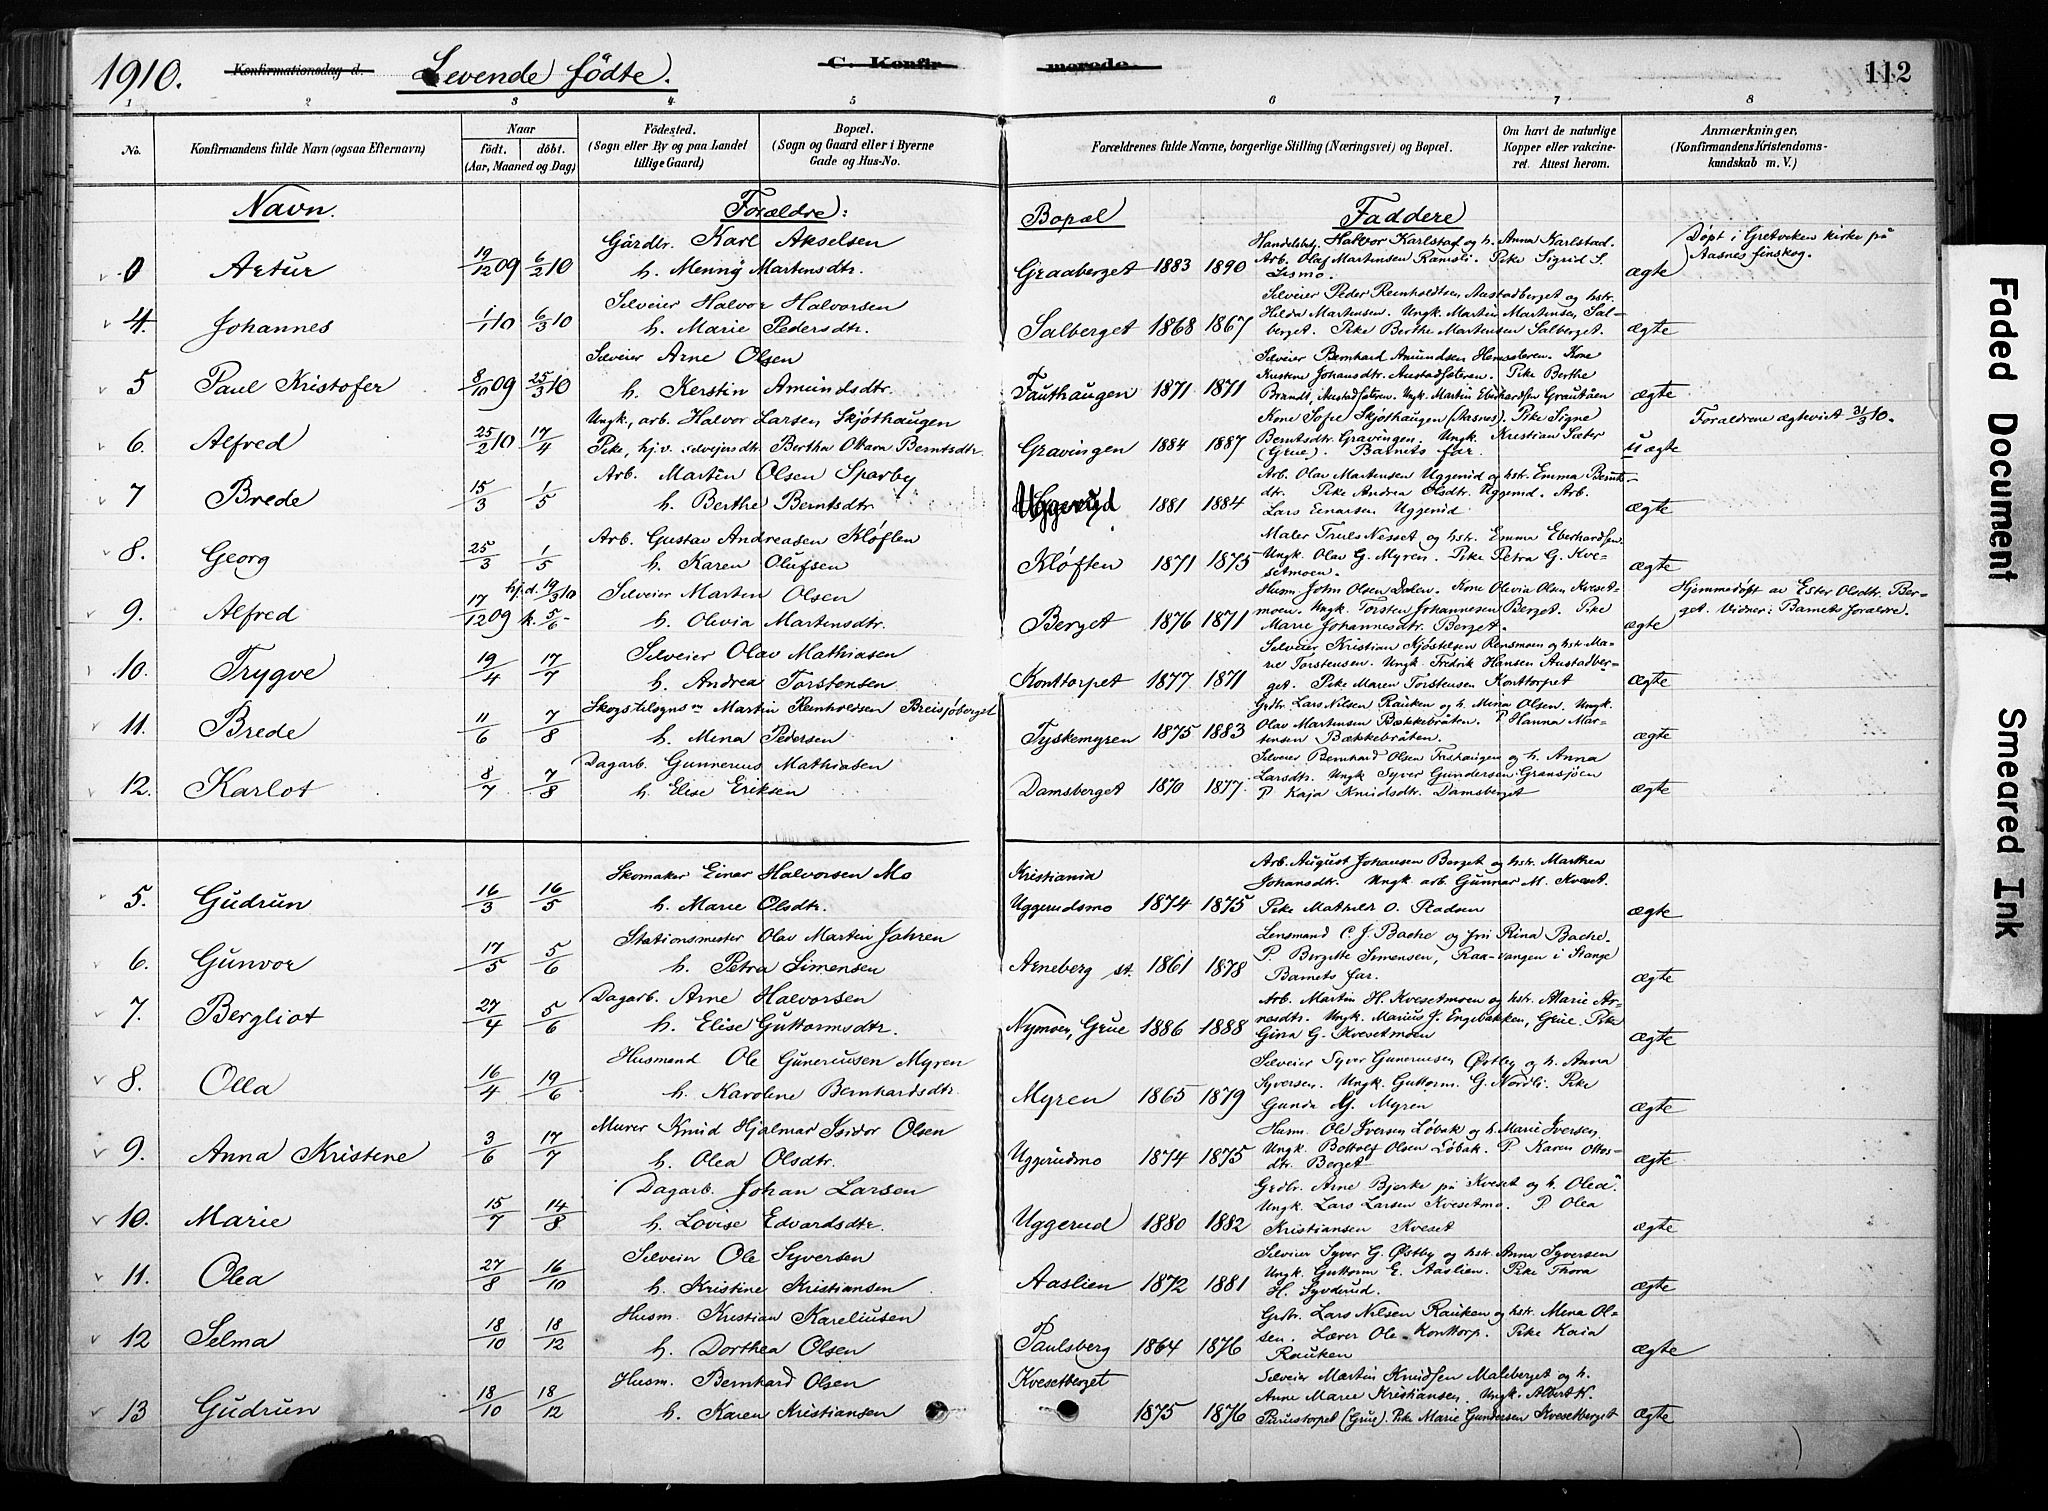 1910. Konfirmationsdag d. Levende fødte. C. Konfirmerede. 112
1 2 3 4 5 6 7 8
No. Konfirmandens fulde Navn (ogsaa Efternavn) Naar født. døbt. (Aar, Maaned og Dag) Fødested. (Sogn eller By og paa Landet tillige Gaard) Bopæl. (Sogn og Gaard eller i Byerne Gade og Hus-No. Forældrenes fulde Navne, borgerlige Stilling (Næringsvei) og Bopæl. Om havt de naturlige Kopper eller vakcineret. Attest herom. Anmærkninger. (Konfirmandens Kristendomskundskab m. V.)
Navn. Forældre: Bopæl Faddere
0 Artur 19/12 09 6/2 10 Gårdbr. Karl Akselsen
h. Menny Martensdtr. Graaberget 1883 1890 Handelsbetj. Halvor Karlstad og h. Anna Karlstad. Arb. Olaf Martensen Ramsli. Pike Sigrid S. Lismo. ægte Døpt i Gretveken kirke på Aasnes finskog.
4. Johannes 1/1 10 6/3 10 Selveier Halvor Halvorsen
h. Marie Pedersdtr. Salberget 1868 1867 Selveier Peder Reinholdtsen Austadberget og hstr. Hilda Martensen. Ungk. Martin Martensen, Salberget. Pike Berthe Martensen Salberget. ægte
5 Paul Kristofer 8/10 09 25/3 10 Selveier Arne Olsen
h. Kerstin Amundsdtr. Fauthaugen 1871 1871 Selveier Bernhard Amundsen. Kone Kristine Johansdtr. Austadsæteren. Pike Berthe Brandt, Austadsæteren. Ungk. Martin Eberhardsen ægte
6. Alfred 25/2 10 17/4 Ungk., arb. Halvor Larsen Skjøthaugen
Pike, hj.v. selveiersdtr. Bertha Berntsdtr. Gravingen 1884 1887 Kone Sofie Skjøthaugen (Aasnes). Pike Signe Berntsdtr. Gravingen. Ungk. Kristian Sæter (Grue). Barnets far. uægte Forældrene ægteviet 31/3 10.
7 Brede 15/3 1/5 Arb. Martin Olsen Sparby
h. Berthe Berntsdtr. Uggerud 1881 1884 Arb. Olav Martensen Uggerud og hstr. Emma Berntsdtr. Pike Andrea Olsdtr. Uggerud. Arb. Lars Einarsen Uggerud ægte
8. Georg 25/3 1/5 Arb. Gustav Andreasen Kløften
h. Karen Olufsen Kløften 1871 1875 Maler Truls Nesset og hstr. Emma Eberhardsen. Ungk. Olav G. Myren. Pike Petra G. Kvesetmoen. ægte
9. Alfred 17/12 09 hj.d. 19/3 10 k. 5/6 Selveier Martin Olsen
h. Olivia Martensdtr. Berget 1876 1871 Husm. John Olsen Dalen. Kone Olivia Olsen Kvesetmoen. Ungk. Torsten Johannesen Berget. Pike Marie Johannesdtr. Berget. ægte Hjemmedøpt av Ester Olsdtr. Berget. Vidner: Barnets forældre.
10. Trygve 19/4 17/7 Selveier Olav Mathiasen
h. Andrea Torstensen Konttorpet 1877 1871 Selveier Kristian Kjøstelsen Rensmoen og hstr. Marie Torstensen. Ungk. Fredrik Hansen Austadberget. Pike Maren Torstensen Konttorpet ægte
11. Brede 11/6 7/8 Skogstilsyns Martin Reinholdsen Breisjøberget
h. Mina Pedersen Tyskemyren 1875 1883 Grdbr. Lars Nilsen Rauken og h. Mina Olsen. Ungk. Olav Martensen Bækkebråten. P. Hanna Martensen Bækkebråten. ægte
12. Karlot 8/7 7/8 Dagarb. Gunnerius Mathiasen
h. Elise Eriksen Damsberget 1870 1877 Selveier Bernhard Olsen og h. Anna Larsdtr. Ungk. Syver Gundersen Gransjøen P. Kaja Knudsdtr. Damsberget ægte
5. Gudrun 16/3 16/5 Skomaker Einar Halvorsen Mo Kristiania
h. Marie Olsdtr. Uggerudsmo 1874 1875 Arb. August Johansen Berget og hstr. Marthea Johansdtr. Ungk. arb. Gunnar M. Kveset. Pike Mathilde O. ægte
6. Gunvor 17/5 5/6 Stationsmester Olav Martin Jahren
h. Petra Simensen Arneberg st. 1861 1878 Lensmand C. J. Bache og fru Rina Bache. P. Bergitte Simensen, Raavangen i Stange Barnets far. ægte
7. Bergliot 27/4 5/6 Dagarb. Arne Halvorsen
h. Elise Guttormsdtr. Nymoen, Grue 1886 1888 Arb. Martin H. Kvesetmoen og hstr. Marie Arnesdtr. Ungk. Marius J. Engebakken, Grue. Pike Gina G. Kvesetmoen ægte
8. Olla 16/4 19/6 Husmand Ole Guneriusen Myren
h. Karoline Bernhardsdtr. Myren 1865 1879 Selveier Syver Guneriusen Østby og h. Anna Syversen. Ungk. Guttorm G. Nordli. Pike Gunda M. Myren ægte
9. Anna Kristine 3/6 17/7 Murer Knud Hjalmar Isidor Olsen
h. Olea Olsdtr. Uggerudmo 1874 1875 Husm. Ole Iversen Løbak og h. Marie Iversen. Ungk. Bottolf Olsen Løbak. P. Karen Berget ægte
10. Marie 15/7 14/8 Dagarb. Johan Larsen
h. Lovise Edvardsdtr. Uggerud 1880 1882 Grdbr. Arne Bjerke på Kveset og h. Olea. Ungk. Lars Larsen Kvesetmo. P. Olea Kristiansen Kveset ægte
11. Olea 27/8 16/10 Selveier Ole Syversen
h. Kristine Kristiansen Aaslien 1872 1881 Selveier Syver G. Østby og hstr. Anna Syversen Ungk. Guttorm E. Aaslien. Pike Thora H. Syverud. ægte
12 Selma 18/10 18/12 Husm. Kristian Kareliusen
h. Dorthea Olsen Paulsberg 1864 1876 Grdbr. Lars Nilsen Rauken og hstr. Mina Olsen. Lærer Ole Konttorp. Pike Kaia Rauken ægte
13 Gudrun 18/10 18/12 Husm. Bernhard Olsen Kvesetberget
h. Karen Kristiansen 1875 1876 Selveier Martin Knudsen Maleberget og h. Anne Marie Kristiansen. Ungk. Albert K. (Grue). Pike Marie Gundersen Kvesetberget ægte
Faded Document
Smeared Ink